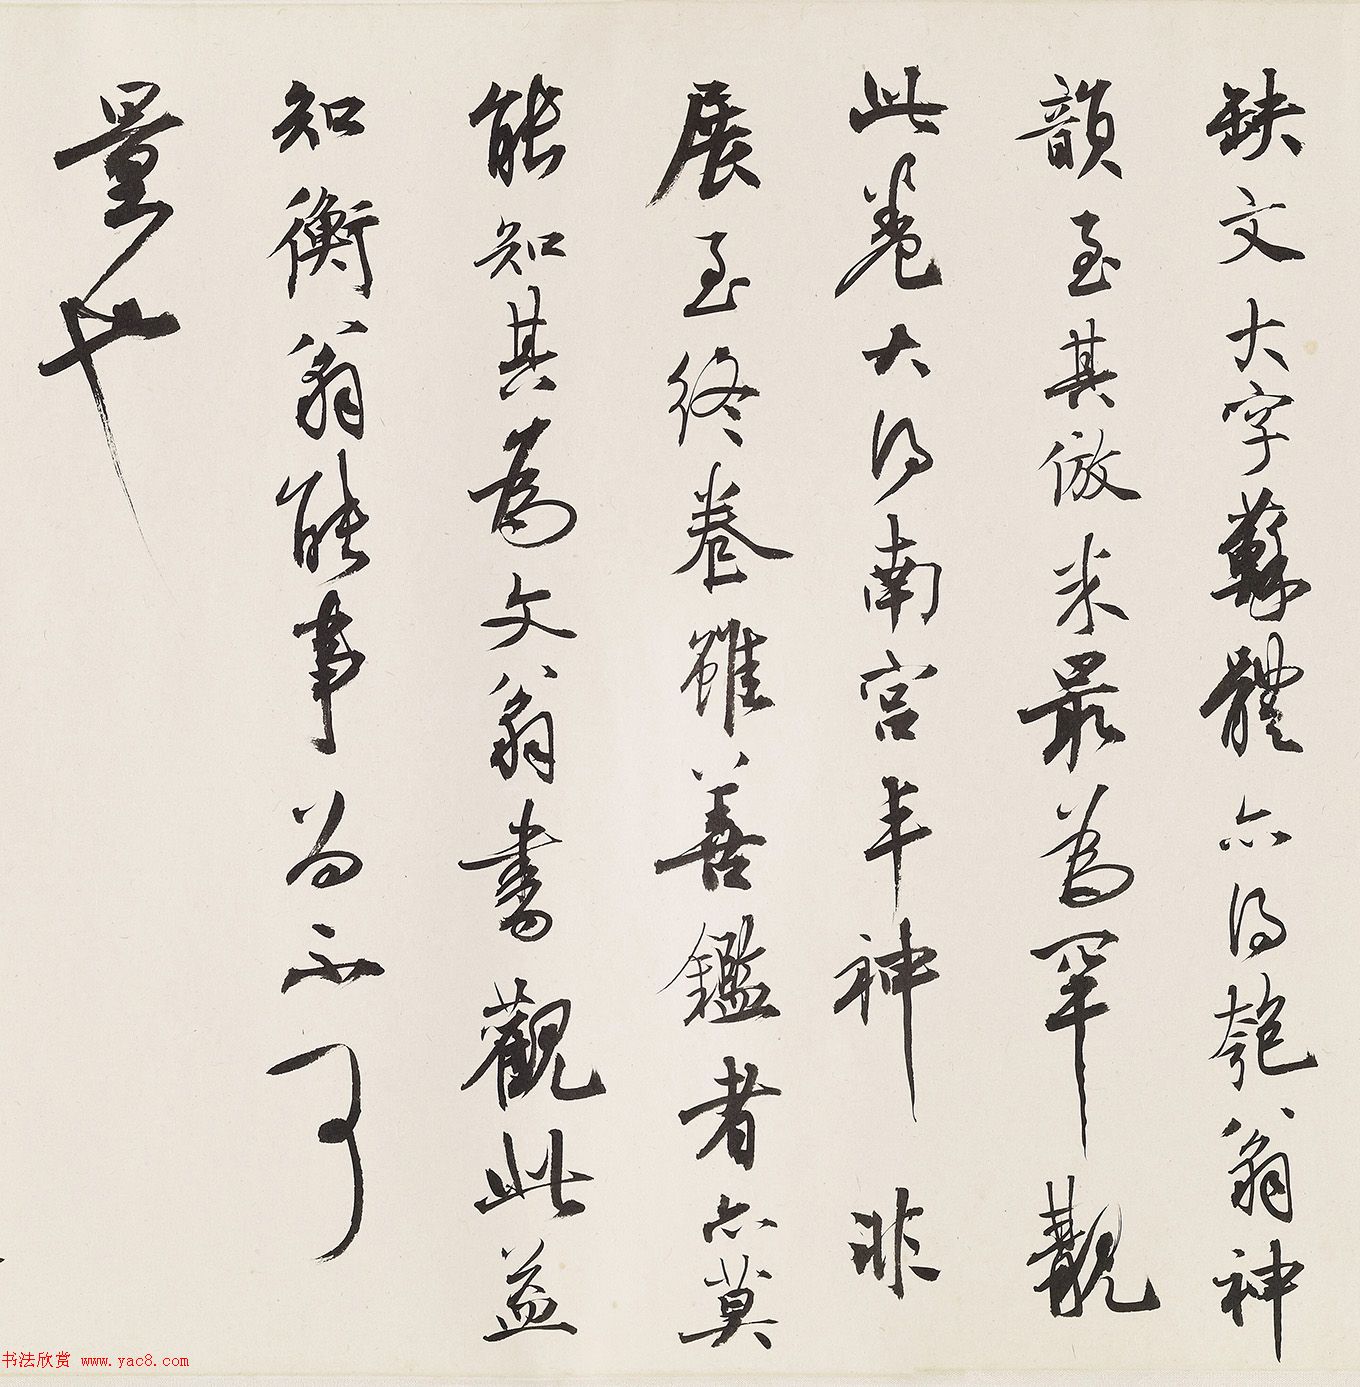 缺文大字蘇體亦得匏翁神
韻至其倣米最為罕觀
此卷大得南宮丰神非
展至終卷雖善鑑者亦莫
能知其為文翁書觀此益
知衡翁能事為不可
量也
书法欣赏 www.yac8.com